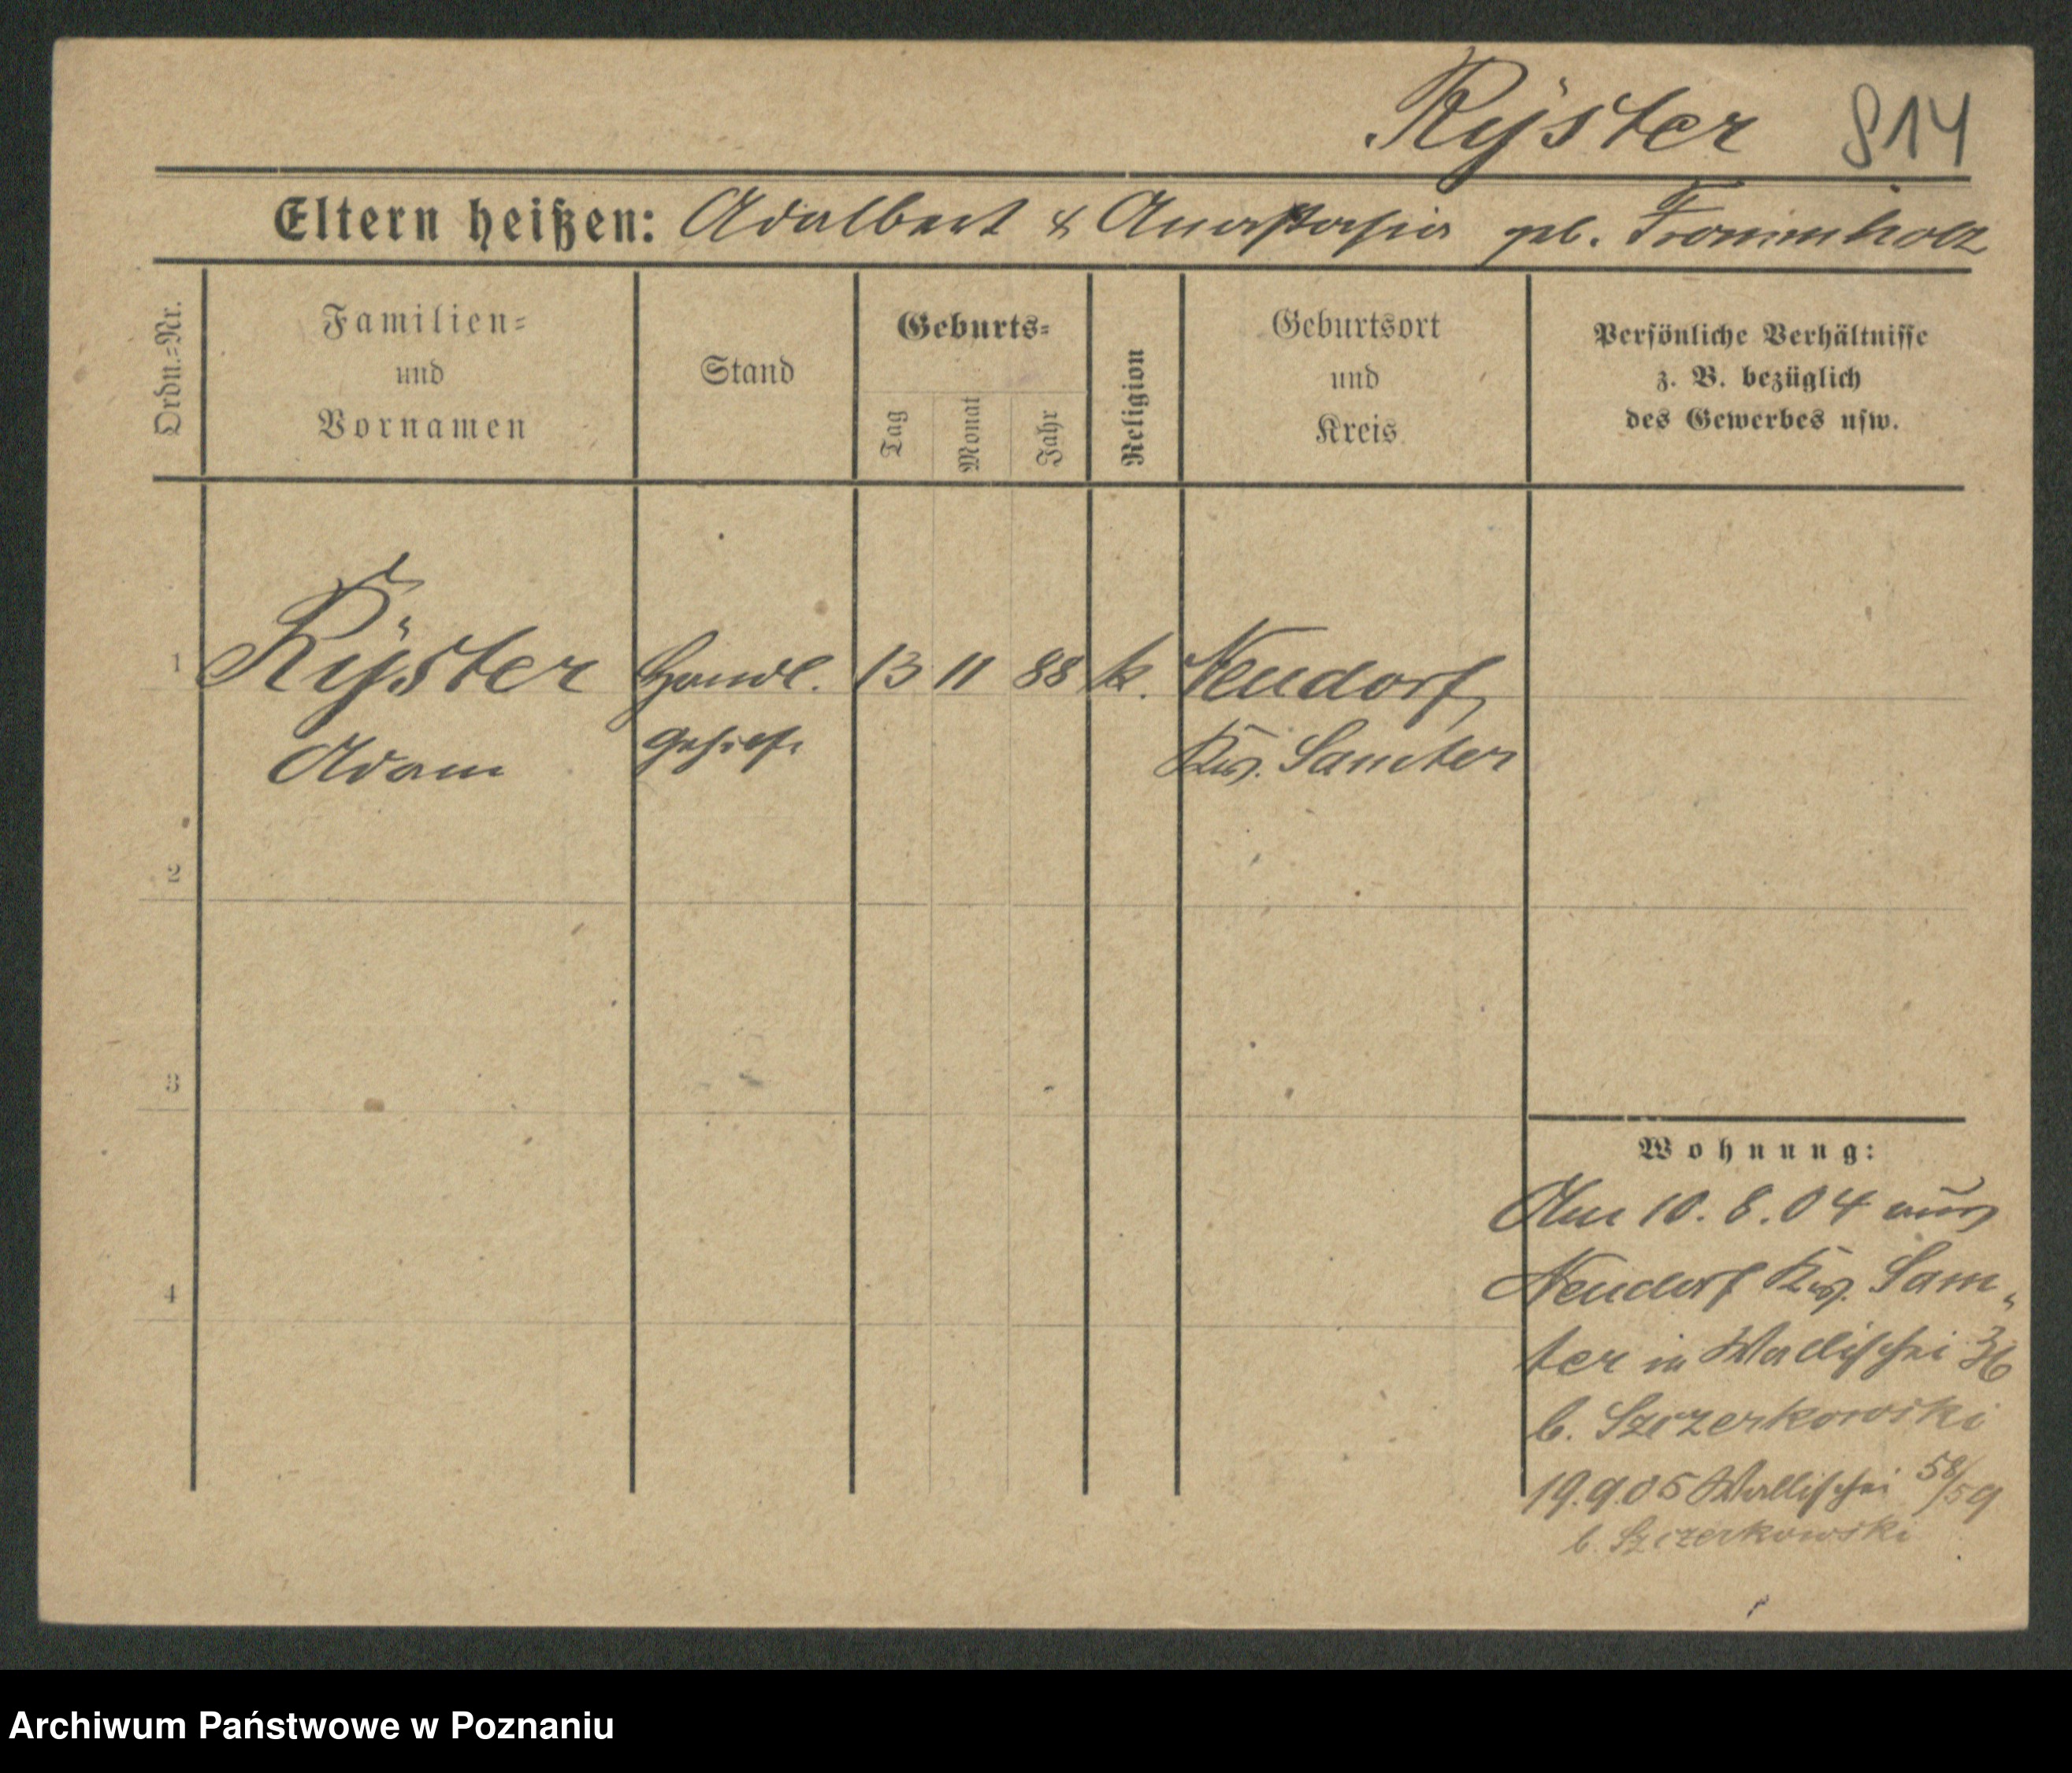 Ryster 814
Eltern heißen: Adalbert & Anastasia geb. Frommholz
Ordn.=Nr.
Familien=
und
Vornamen
Stand
Geburts=
Tag
Monat
Jahr
Religion
Geburtsort
und
Kreis
Persönliche Verhältnisse
z. B. bezüglich
des Gewerbes usw.
1 Ryster Handl. 13 11 88 k. Neudorf,
Adam Krs. Samter
2
3
4
Wohnung:
Am 10. 8. 04 aus
Neudorf Krs. Sam„
ter in Wallischei 36
b. Szczerkowski
19.9.05 Wallischei 58/59
b. Szczerkowski
Archiwum Państwowe w Poznaniu